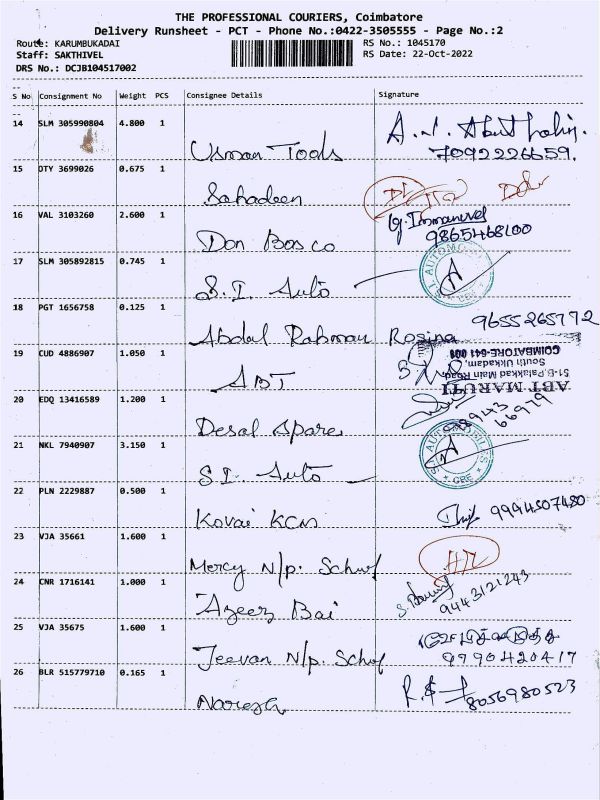 THE PROFESSIONAL COURIERS, Coimbatore
Delivery Runsheet - PCT - Phone No.:0422-3505555 - Page No.:2
Route: KARUMBUKADAI RS No.: 1045170
Staff: SAKTHIVEL RS Date: 22-Oct-2022
DRS No.: DCJB104517002
S No Consignment No Weight PCS Consignee Details Signature
14 SLM 305990804 4.800 1
Usman Tools 7092226659.
15 DTY 3699026 0.675 1
Sahadeen
16 VAL 3103260 2.600 1 G. Immanuvel
Don Bosco 9865468100
17 SLM 305892815 0.745 1
S.I. Auto
18 PGT 1656758 0.125 1
Abdul Rahman Rosina 9655265772
19 CUD 4886907 1.050 1
ABT
ABT MARUTI
51-B, Palakkad Main Road,
South Ukkadam,
COIMBATORE-641 001
20 EDQ 13416589 1.200 1
Desal Spare 98943 66979
21 NKL 7940907 3.150 1
S.I. Auto
22 PLN 2229887 0.500 1
Kovai KCN 9994507480
23 VJA 35661 1.600 1
Mercy N/p. School
24 CNR 1716141 1.000 1
Azeez Bai 9443121243
25 VJA 35675 1.600 1
Jeevan N/p. School 9990420417
26 BLR 515779710 0.165 1
Naresh 8056980523